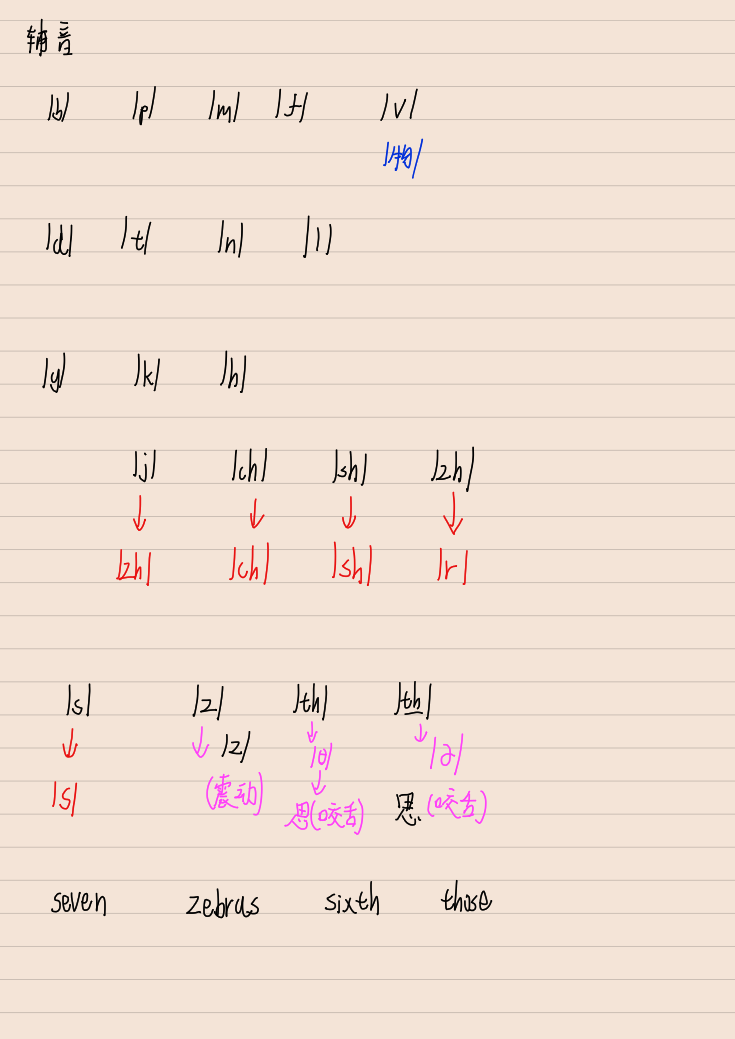 辅音
/b/ /p/ /m/ /f/ /v/
/物/
/d/ /t/ /n/ /l/
/g/ /k/ /h/
/j/ /ch/ /sh/ /zh/
↓ ↓ ↓ ↓
/zh/ /ch/ /sh/ /r/
/s/ /z/ /th/ /th/
↓ ↓ /z/ ↓ ↓
/s/ (震动) /θ/ /ə/
↓
思(咬舌) 思 (咬舌)
seven zebras sixth those